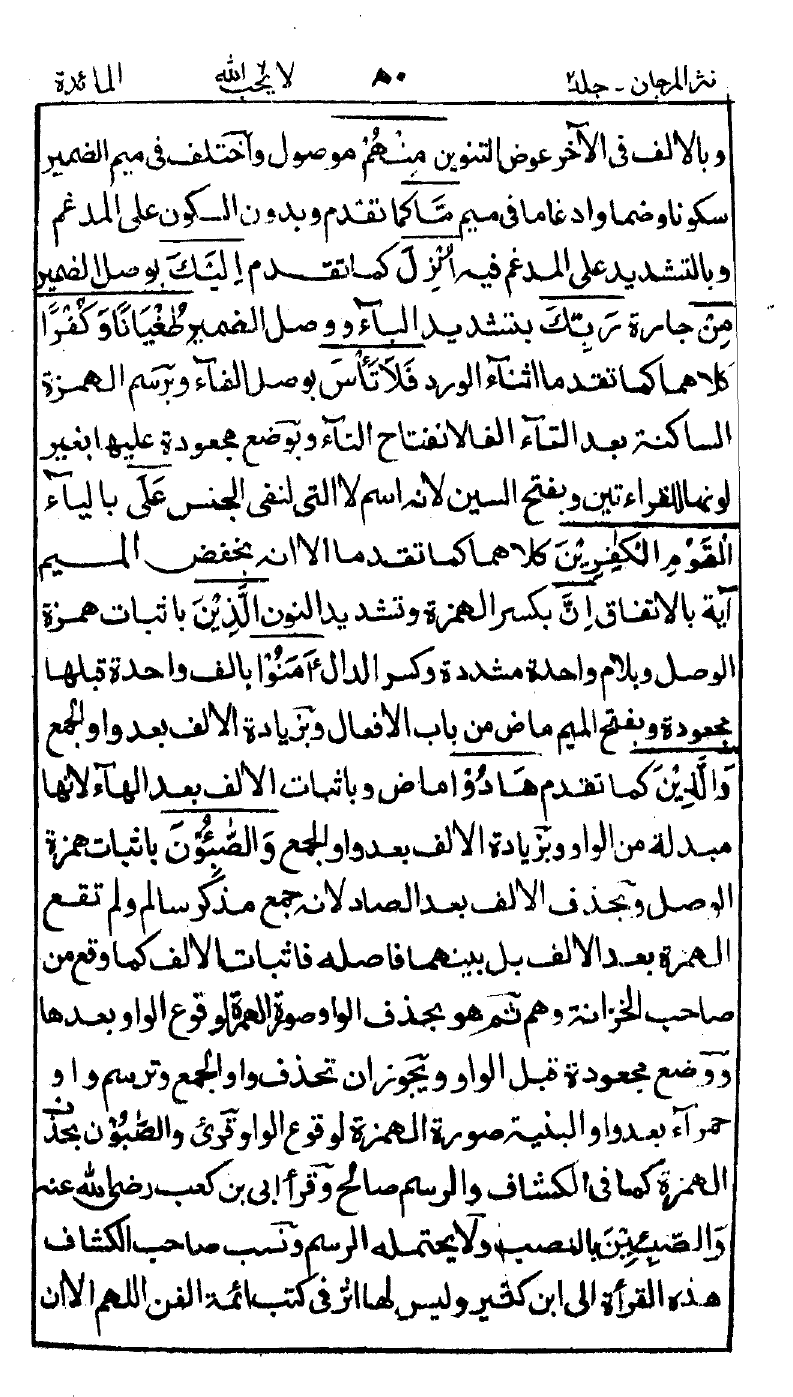 نثر المرجان - جلد٢ ٨٠ لا يحب الله المائدة
وبالالف فى الآخر عوض التنوين مِنْهُمْ موصول واختلف فى ميم الضمير
سكونا وضما وادغاما فى ميم مَّا كما تقدم وبدون السكون على المدغم
وبالتشديد على المدغم فيه اُنْزِلَ كما تقدم اِلَيْكَ بوصل الضمير
مِنْ جارة رَبِّكَ بتشديد البآء ووصل الضمير طُغْيَانًا وَكُفْرًا
كلاهما كما تقدما اثنآء الورد فَلَا تَأْسَ بوصل الفآء وبرسم الهمزة
الساكنة بعد التآء الفا لانفتاح التآء وبوضع مجعودة عليها بغير
لونها للقراءتين وبفتح السين لانه اسم لا التى لنفى الجنس عَلَى باليآء
الْقَوْمِ الْكٰفِرِيْنَ كلاهما كما تقدما الا انه بخفض الميم
آية بالاتفاق اِنَّ بكسر الهمزة وتشديد النون الَّذِيْنَ باثبات همزة
الوصل وبلام واحدة مشددة وكسر الدال ءَامَنُوْا بالف واحدة قبلها
مجعودة وبفتح الميم ماض من باب الافعال وبزيادة الالف بعد واو الجمع
وَالَّذِيْنَ كما تقدم هَادُوْا ماض وباثبات الالف بعد الهآء لانها
مبدلة من الواو وبزيادة الالف بعد واو الجمع وَالصّٰبِـُٔوْنَ باثبات همزة
الوصل وبحذف الالف بعد الصاد لانه جمع مذكر سالم ولم تقع
الهمزة بعد الالف بل بينهما فاصله فاثبات الالف كما وقع من
صاحب الخزانة وهم ثم هو بحذف الواو صورة الهمزة لوقوع الواو بعدها
ووضع مجعودة قبل الواو ويجوز ان تحذف واو الجمع وترسم واو
حمرآء بعد واو البنية صورة الهمزة لوقوع الواو وقرئ والصّٰبُوْن بحذف
الهمزة كما فى الكشاف والرسم صالح وقرأ ابى بن كعب رضى الله عنه
وَالصّٰبِـِٕيْنَ بالنصب ولا يحتمله الرسم ونسب صاحب الكشاف
هذه القرأة الى ابن كثير وليس لها اثر فى كتب ائمة الفن اللهم الا ان